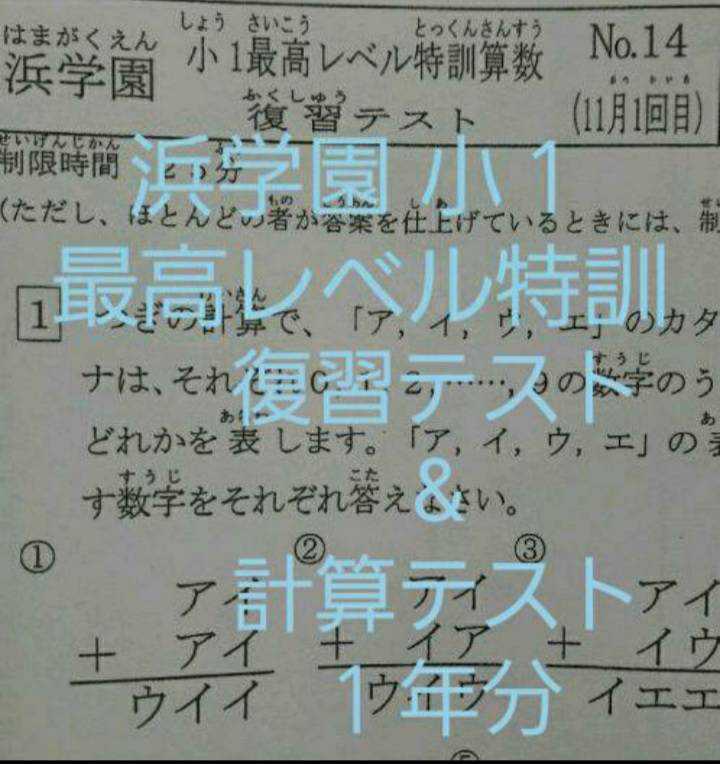 はまがくえん しょう さいこう とっくんさんすう
浜学園 小1最高レベル特訓算数 No.14
ふくしゅう
復習テスト (11月1回目)
せいげんじかん
制限時間 25分
(ただし、ほとんどの者が答案を仕上げているときには、制
1 つぎの計算で、「ア, イ, ウ, エ」のカタ
ナは、それぞれ0, 1, 2, ……, 9の数字のう
どれかを表します。「ア, イ, ウ, エ」の表
す数字をそれぞれ答えなさい。
① ② ③
アイ アイ アイ
+ アイ + イア + イウ
ウイイ ウイウ イエエ
浜学園 小1
最高レベル特訓
復習テスト
&
計算テスト
1年分